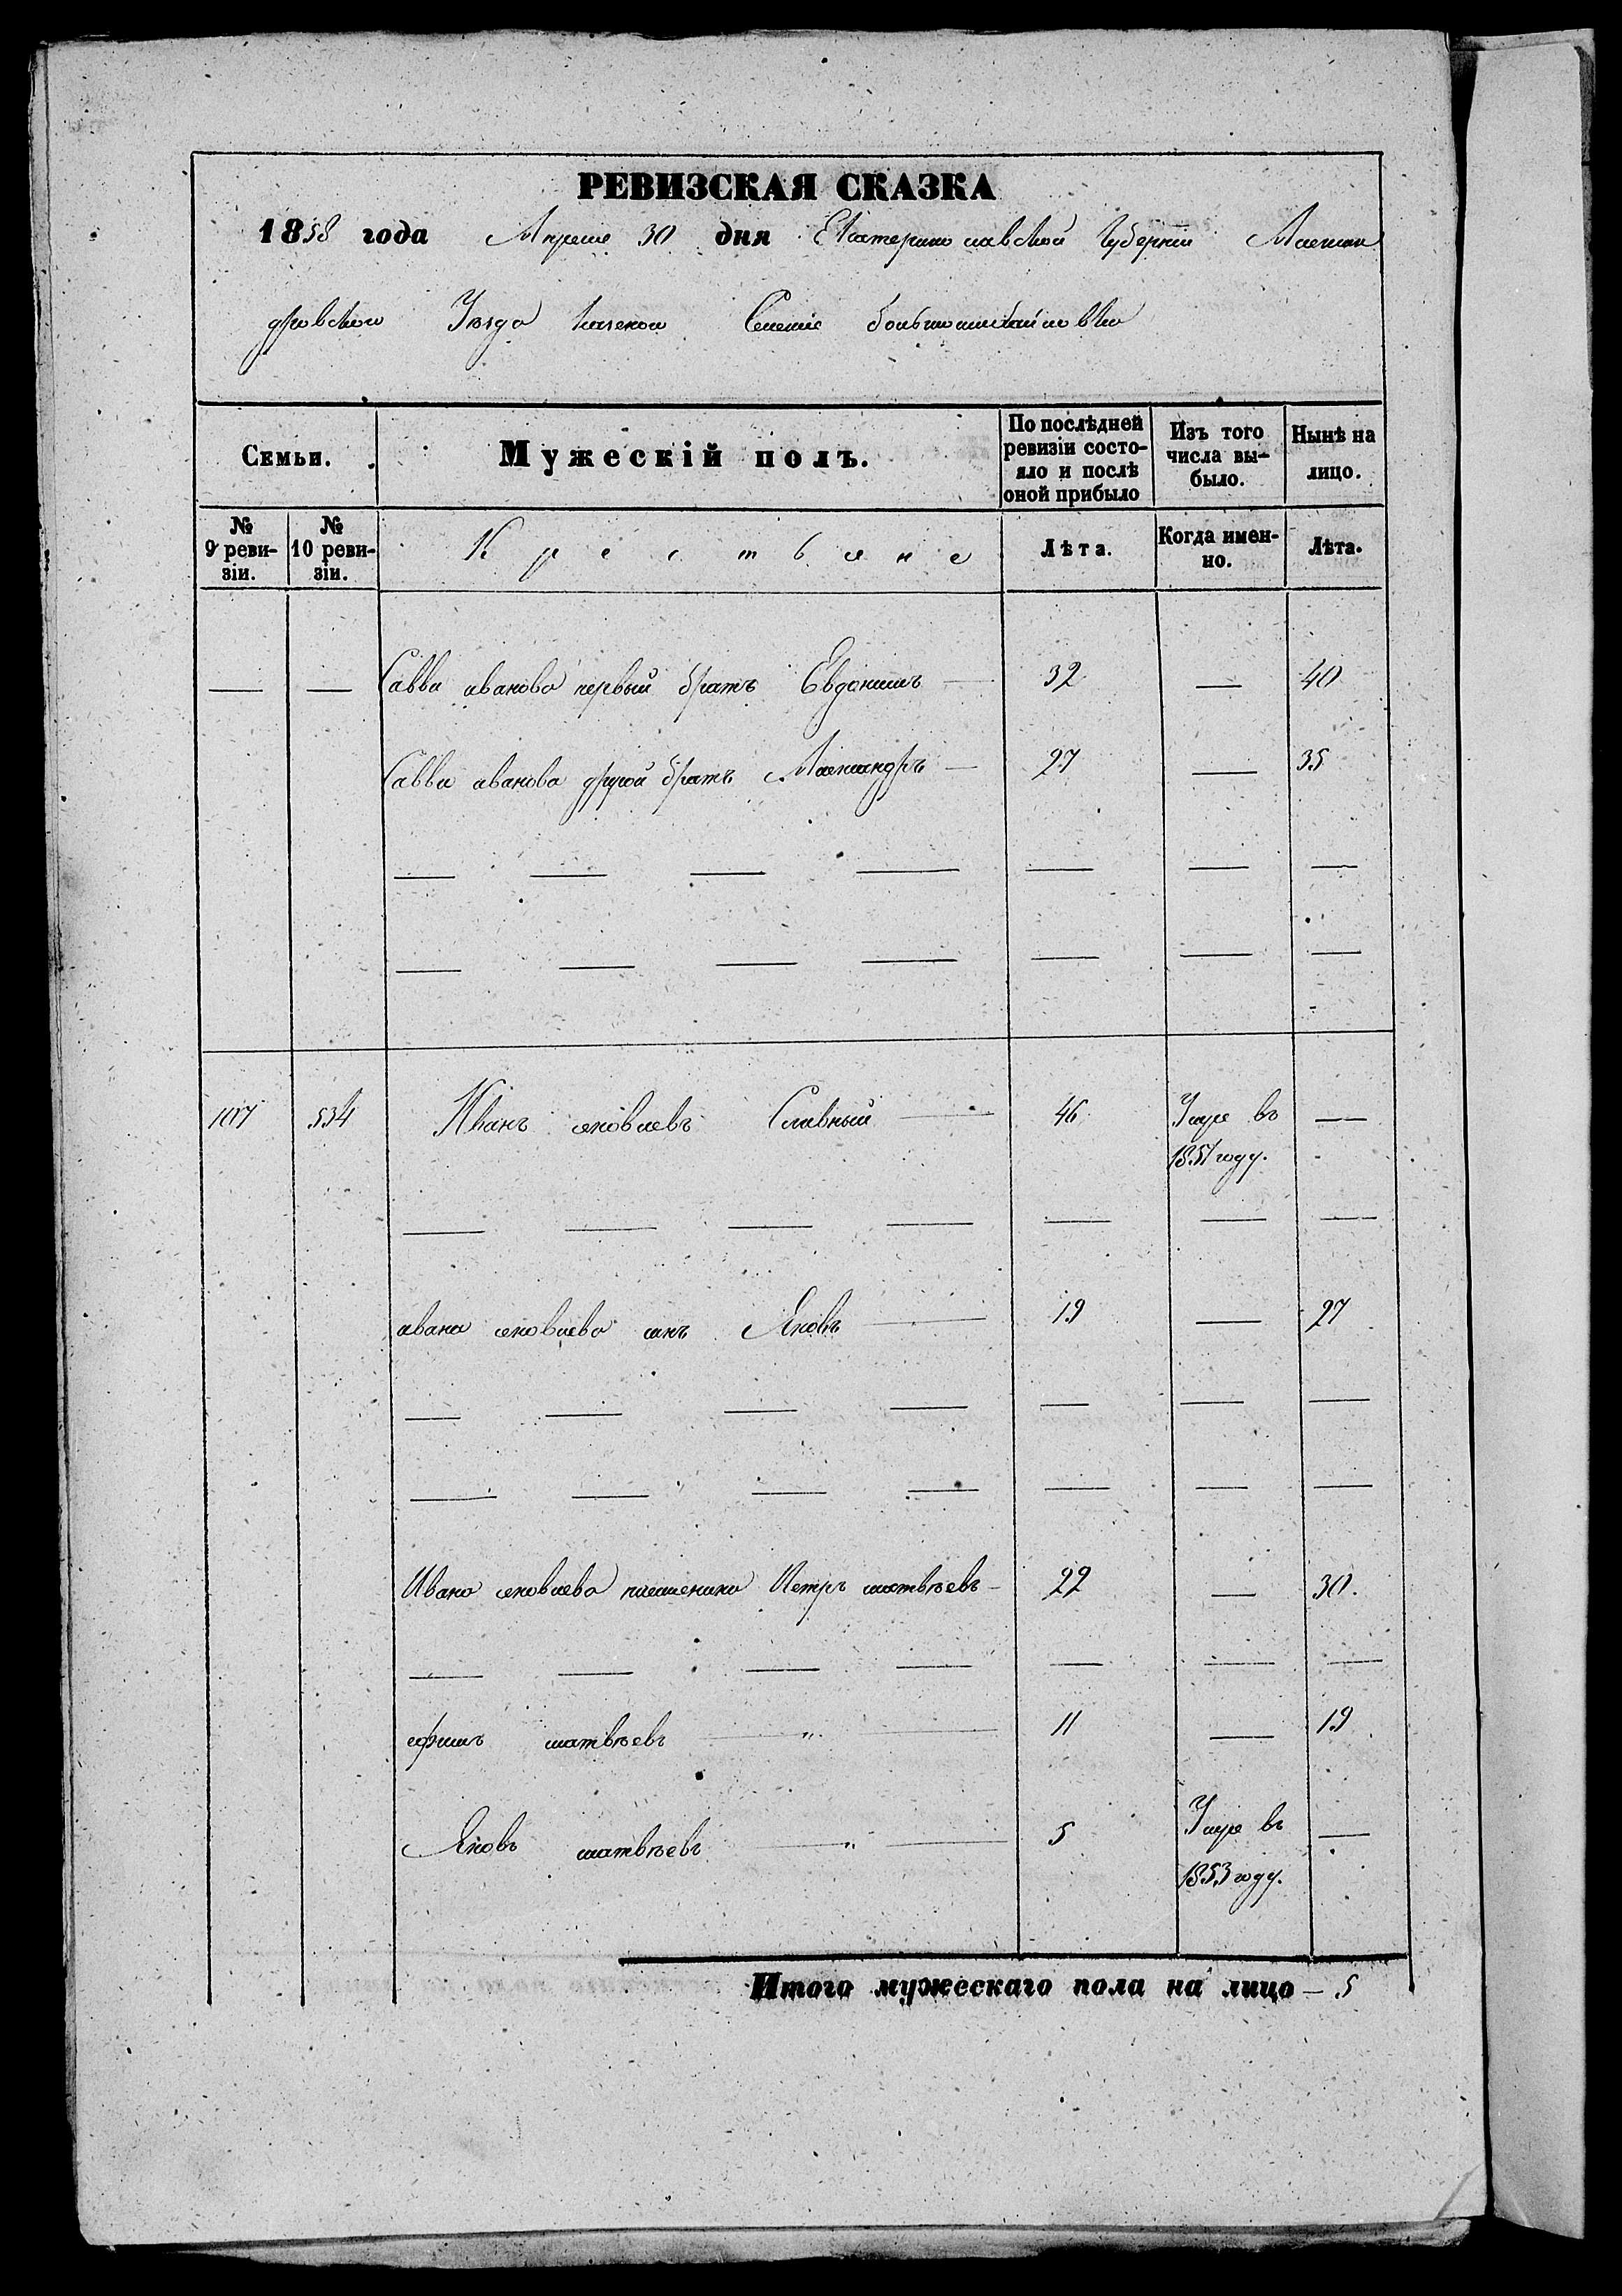 РЕВИЗСКАЯ СКАЗКА
1858 года Апреля 30 дня Екатеринославской Губернии Алексан
дровского Уезда казеного Селенія большомихайловки
Семьи.
Мужескій полъ.
По послѣдней ревизіи состо-
яло и послѣ
оной прибыло
Изъ того
числа вы-
было.
Нынѣ на
лицо.
№
9 реви-
зіи.
№
10 реви-
зіи.
Крестьяне
Лѣта.
Когда имен-
но.
Лѣта.
— — Савви иванова первый братъ Евдокимъ — 32 — 40
Савви иванова другой братъ Александръ — 27 — 35
— — — — — — —
— — — — — — —
107 534 Иванъ яковлевъ Славный — 46 Умре въ —
1851 году.
— — — — — — —
ивана яковлева сынъ Яковъ — 19 — 27
— — — — — — —
— — — — — — —
Ивана яковлева племеники Петръ матвѣевъ — 22 — 30.
— — — — — — —
ефимъ матвѣевъ — " — 11 — 19
Яковъ матвѣевъ — " — 5 Умре въ —
1853 году.
Итого мужескаго пола на лицо — 5